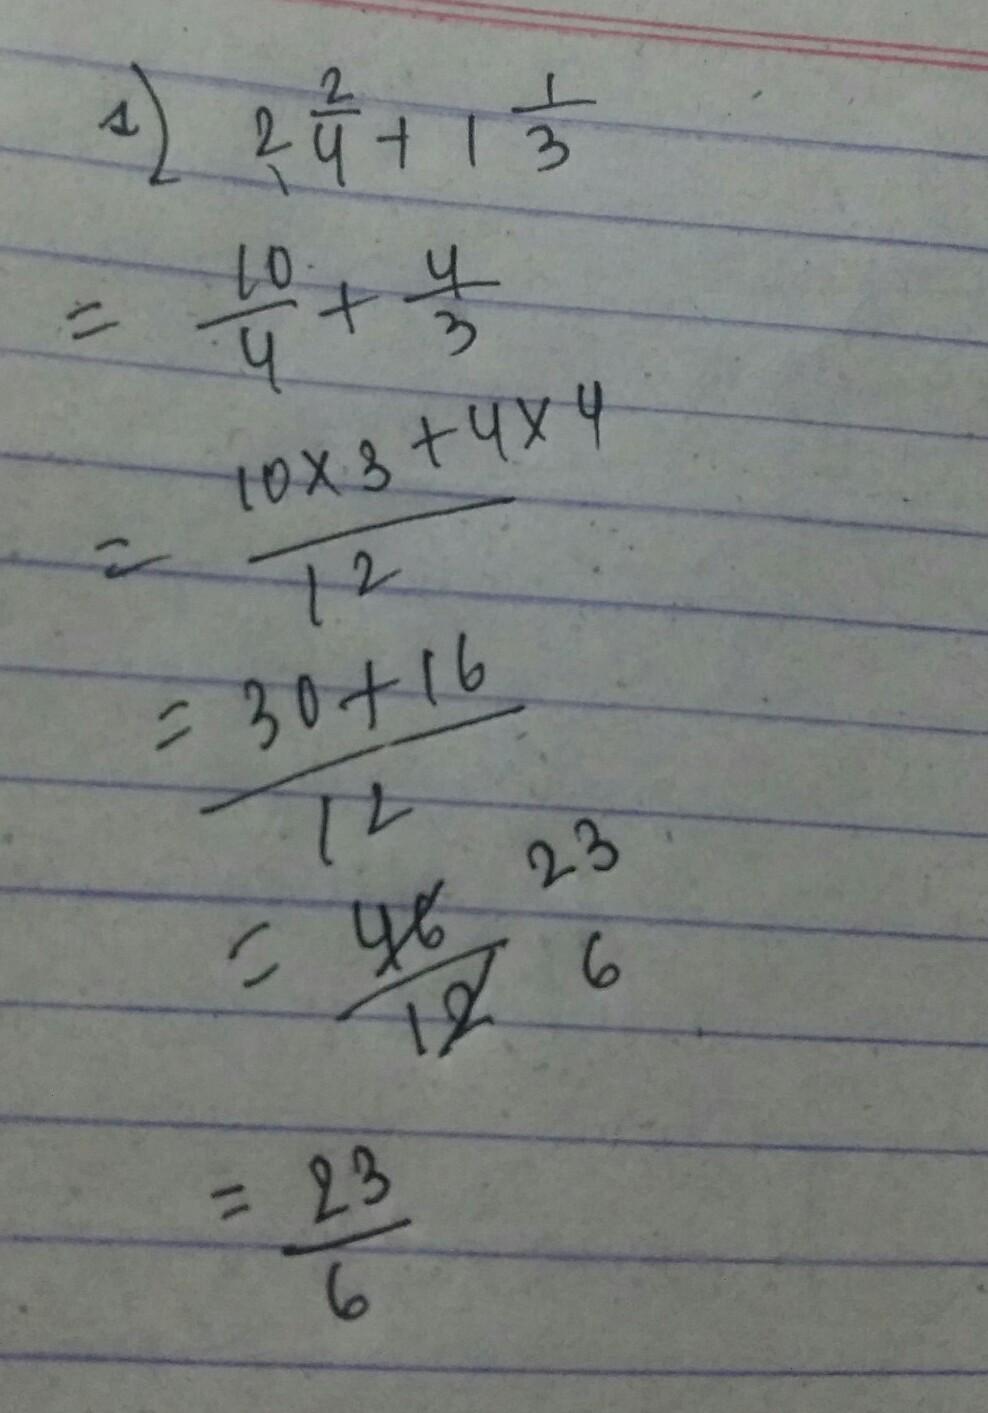 1) 2 2/4 + 1 1/3
= 10/4 + 4/3
= (10 × 3 + 4 × 4)/12
= (30 + 16)/12
= 46/12 23/6
= 23/6